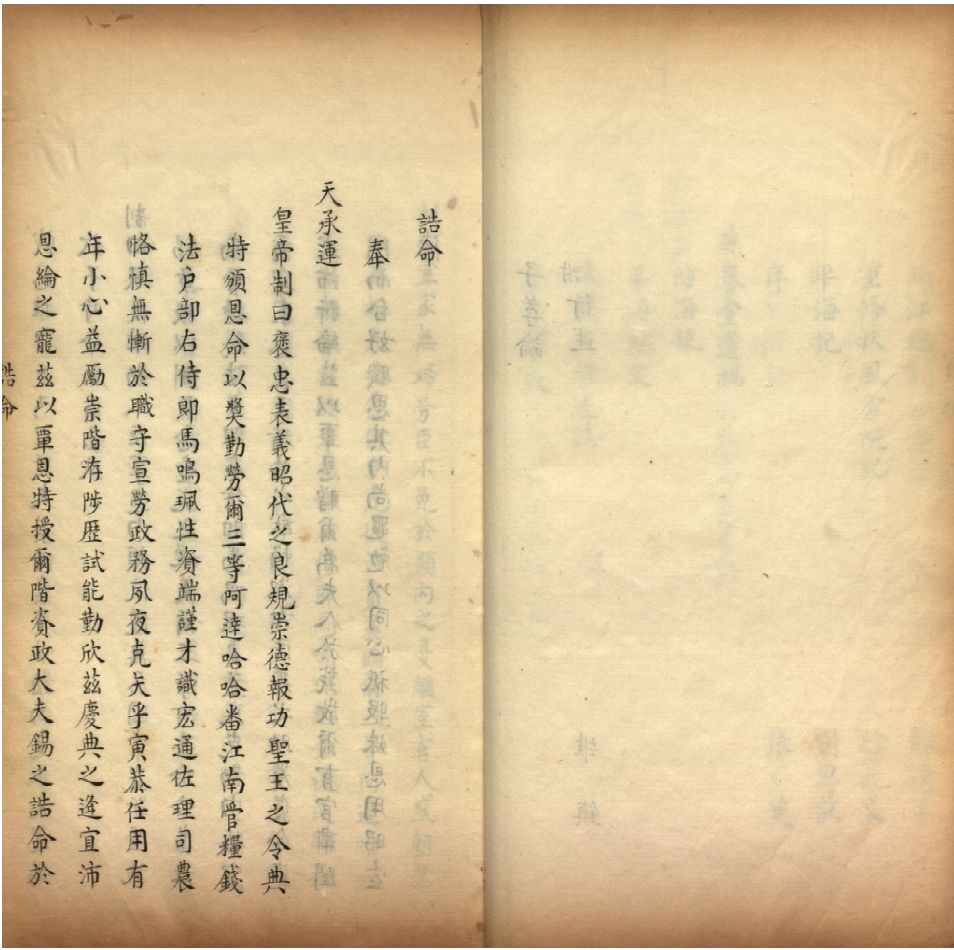 誥命
奉
天承運
皇帝制曰褒忠表義昭代之良規崇德報功聖王之令典
特頒恩命以獎勤勞爾三等阿達哈哈番江南管糧錢
法戶部右侍郎馬鳴珮性資端謹才識宏通佐理司農
恪慎無慚於職守宣勞政務夙夜克矢乎寅恭任用有
年小心益勵崇階洊陟歷試能勤欣茲慶典之逢宜沛
恩綸之寵茲以覃恩特授爾階資政大夫錫之誥命於
誥命